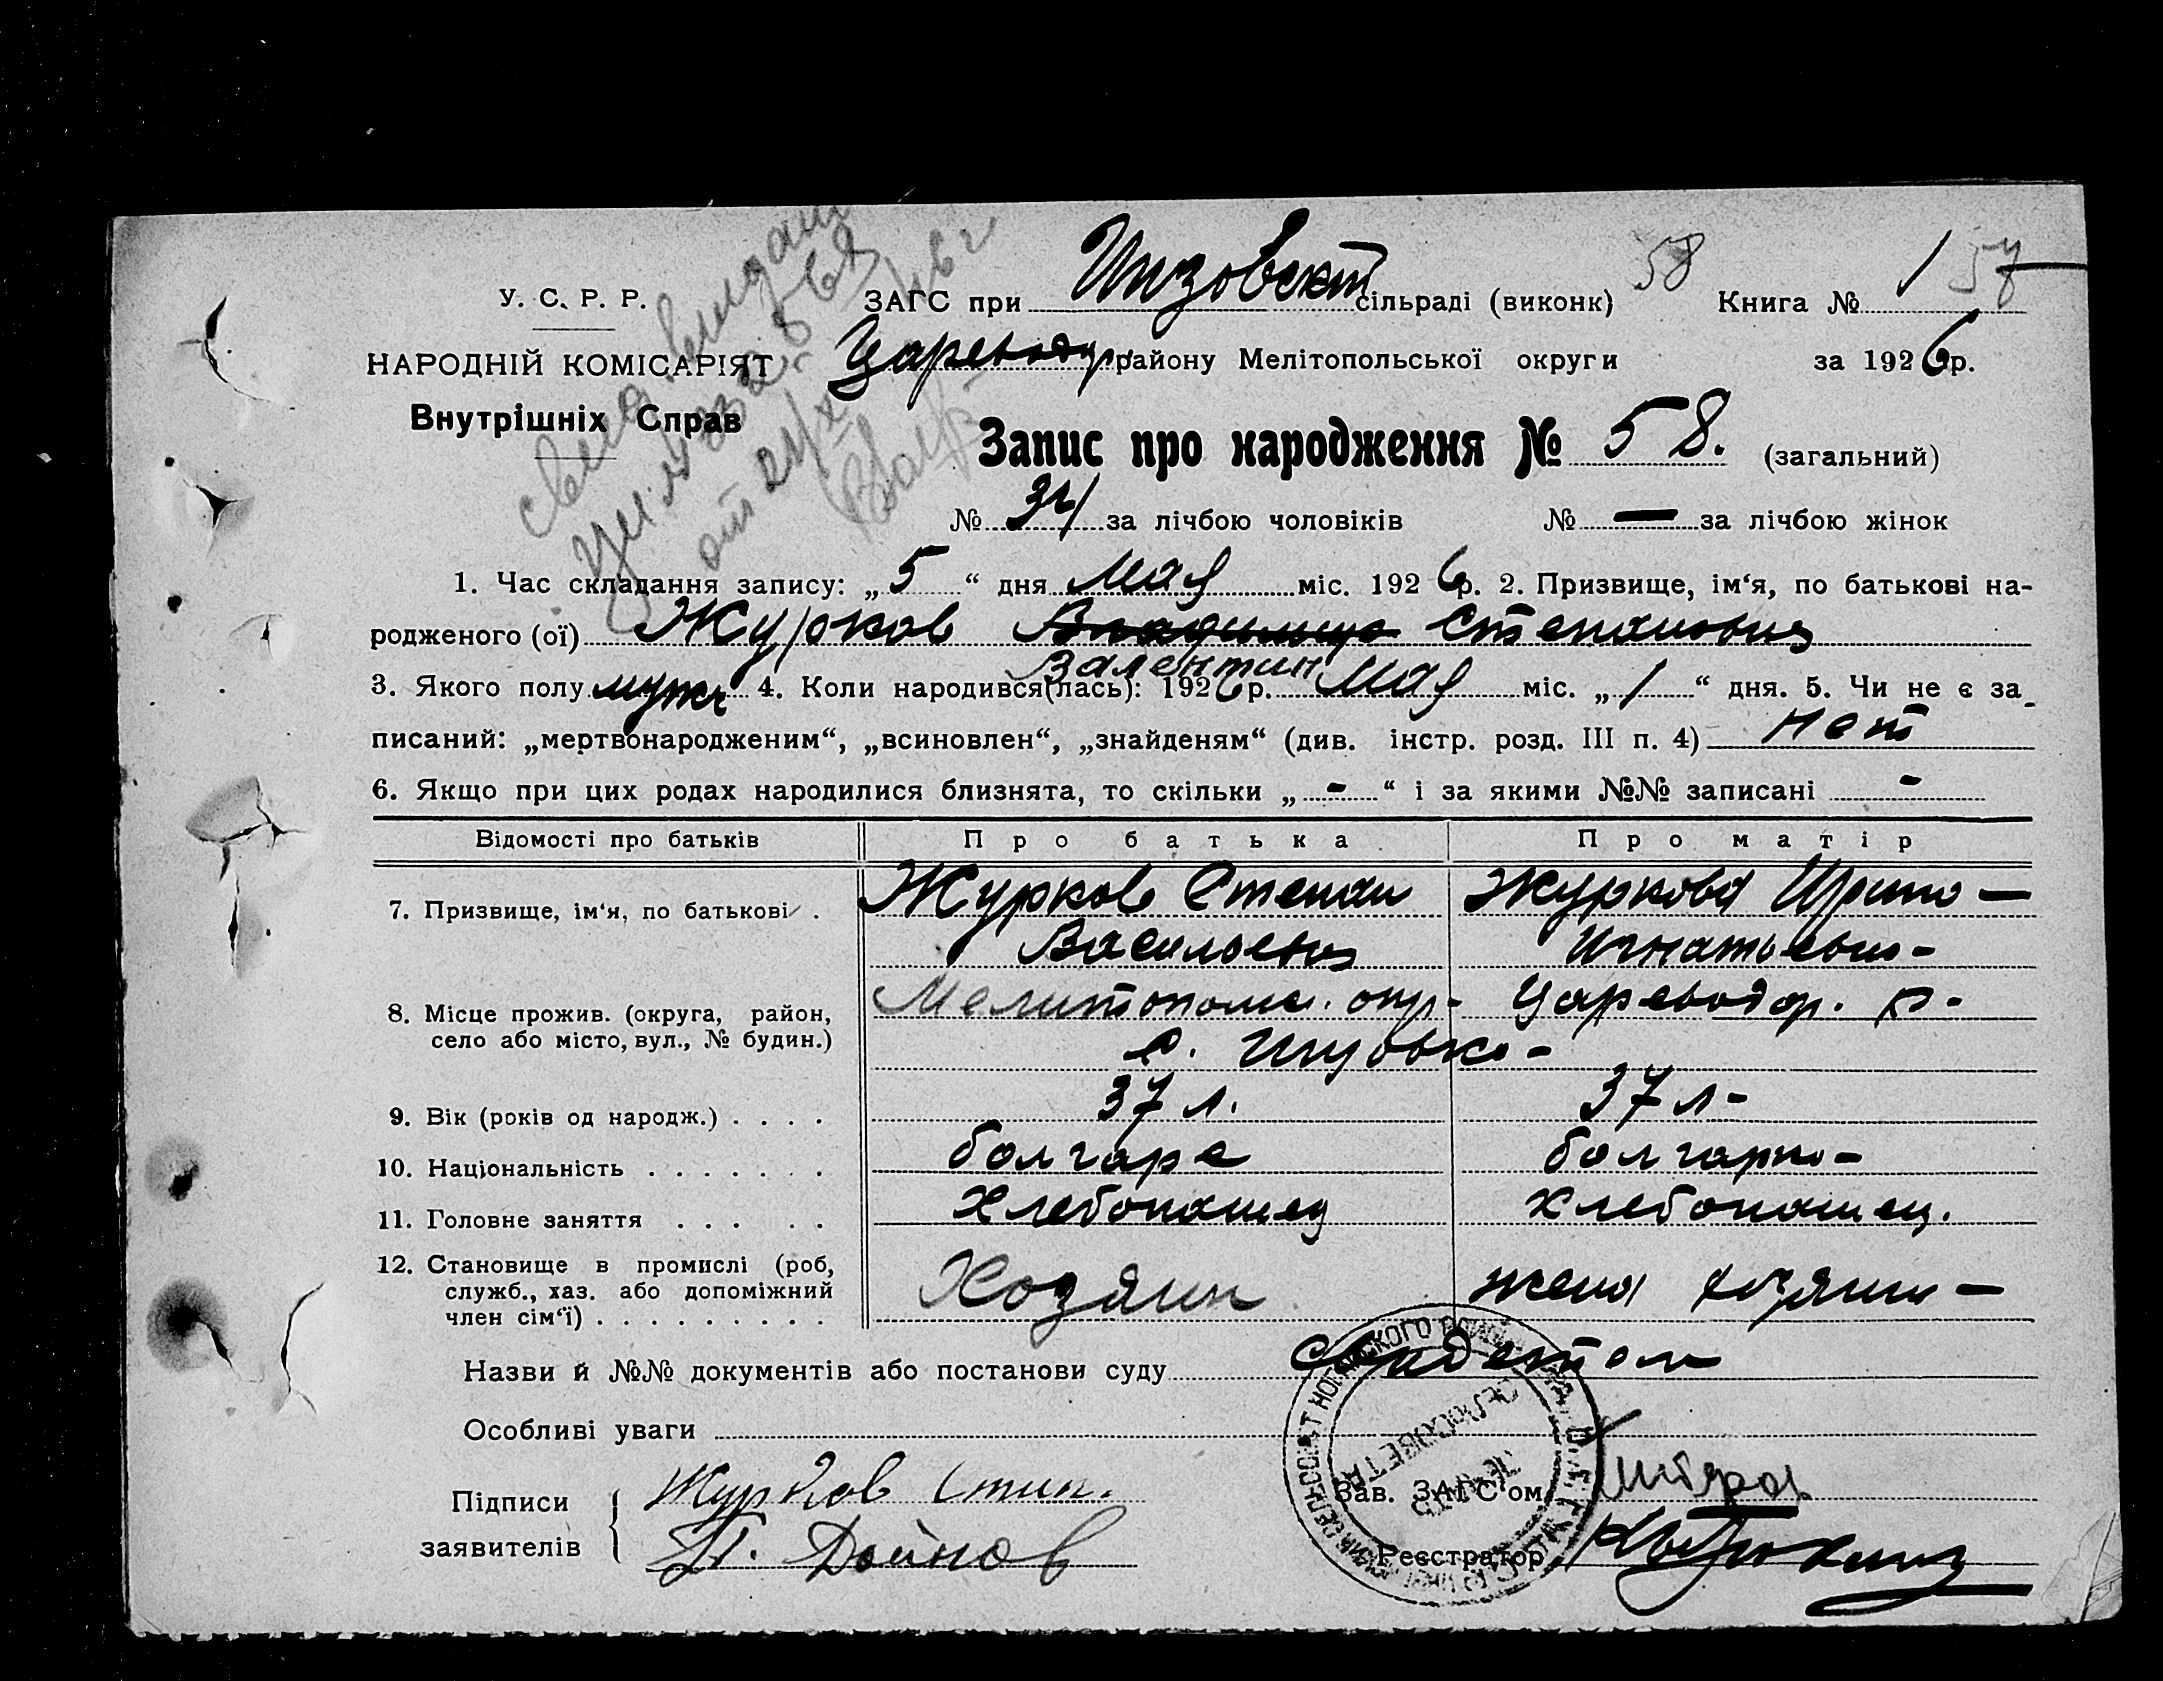 58
57
У. С. Р. Р. ЗАГС при сільраді (виконк) Книга № 1
НАРОДНІЙ КОМІСАРІЯТ Царевод району Мелітопольської округи за 1926 р.
Внутрішніх Справ
Запис про народження № 58. (загальний)
№ за лічбою чоловіків № — за лічбою жінок
1. Час складання запису: „5“ дня Мая міс. 1926 р. 2. Призвище, ім‘я, по батькові на-
родженого (ої) Журков Владимир Степанович
Валентин
3. Якого полу мужс 4. Коли народився(лась): 1926 р. Мая міс. „1“ дня. 5. Чи не є за_
писаний: „мертвонародженим“, „всиновлен“, „знайденям“ (див. інстр. розд. III п. 4) нет
6. Якщо при цих родах народилися близнята, то скільки „-“ і за якими №№ записані -
Відомості про батьків Про батька Про матір
7. Призвище, ім‘я, по батькові . Журков Степан Журкова Ирина —
Васильевич Игнатьевна -
8. Місце прожив. (округа, район, Мелитополь. окр- Цареводар. р-
село або місто, вул., № будин.) с.
9. Вік (років од народж.) . . . . 37 л. 37 л-
10. Національність . . . . . . . болгаре болгарка -
11. Головне заняття . . . . . Хлебопашец Хлебопашец.
12. Становище в промислі (роб, Хозяин жена хозяина —
служб., хаз. або допоміжний
член сім‘ї) . . . . . . . . .
Назви й №№ документів або постанови суду
Особливі уваги
Підписи Журков Степ. Зав. ЗАГС‘ом
заявителів П. Дойнов Реєстратор
СЕЛЬСОВЕТА